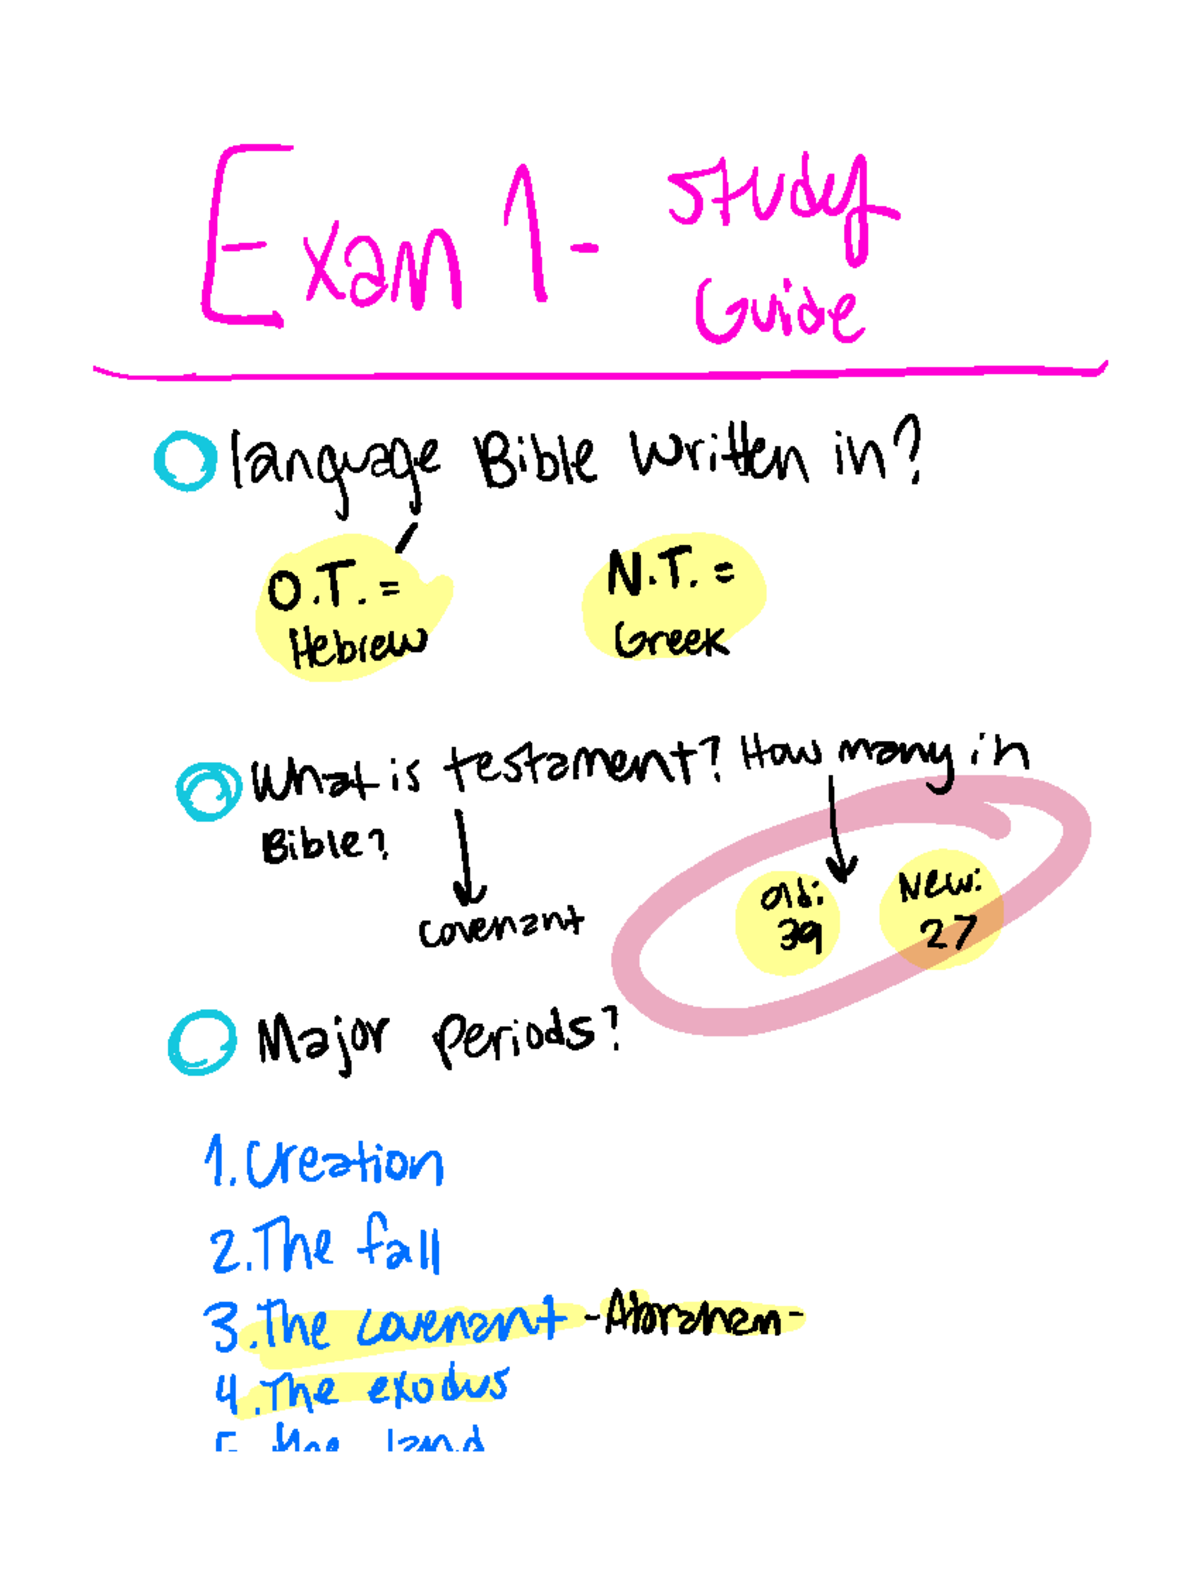 Exam 1 - Study
Guide
language Bible written in?
O.T. =
Hebrew
N.T. =
Greek
What is testament? How many in
Bible?
covenant
Old:
39
New:
27
Major periods?
1. Creation
2. The fall
3. The covenant - Abraham -
4. The exodus
5. the land